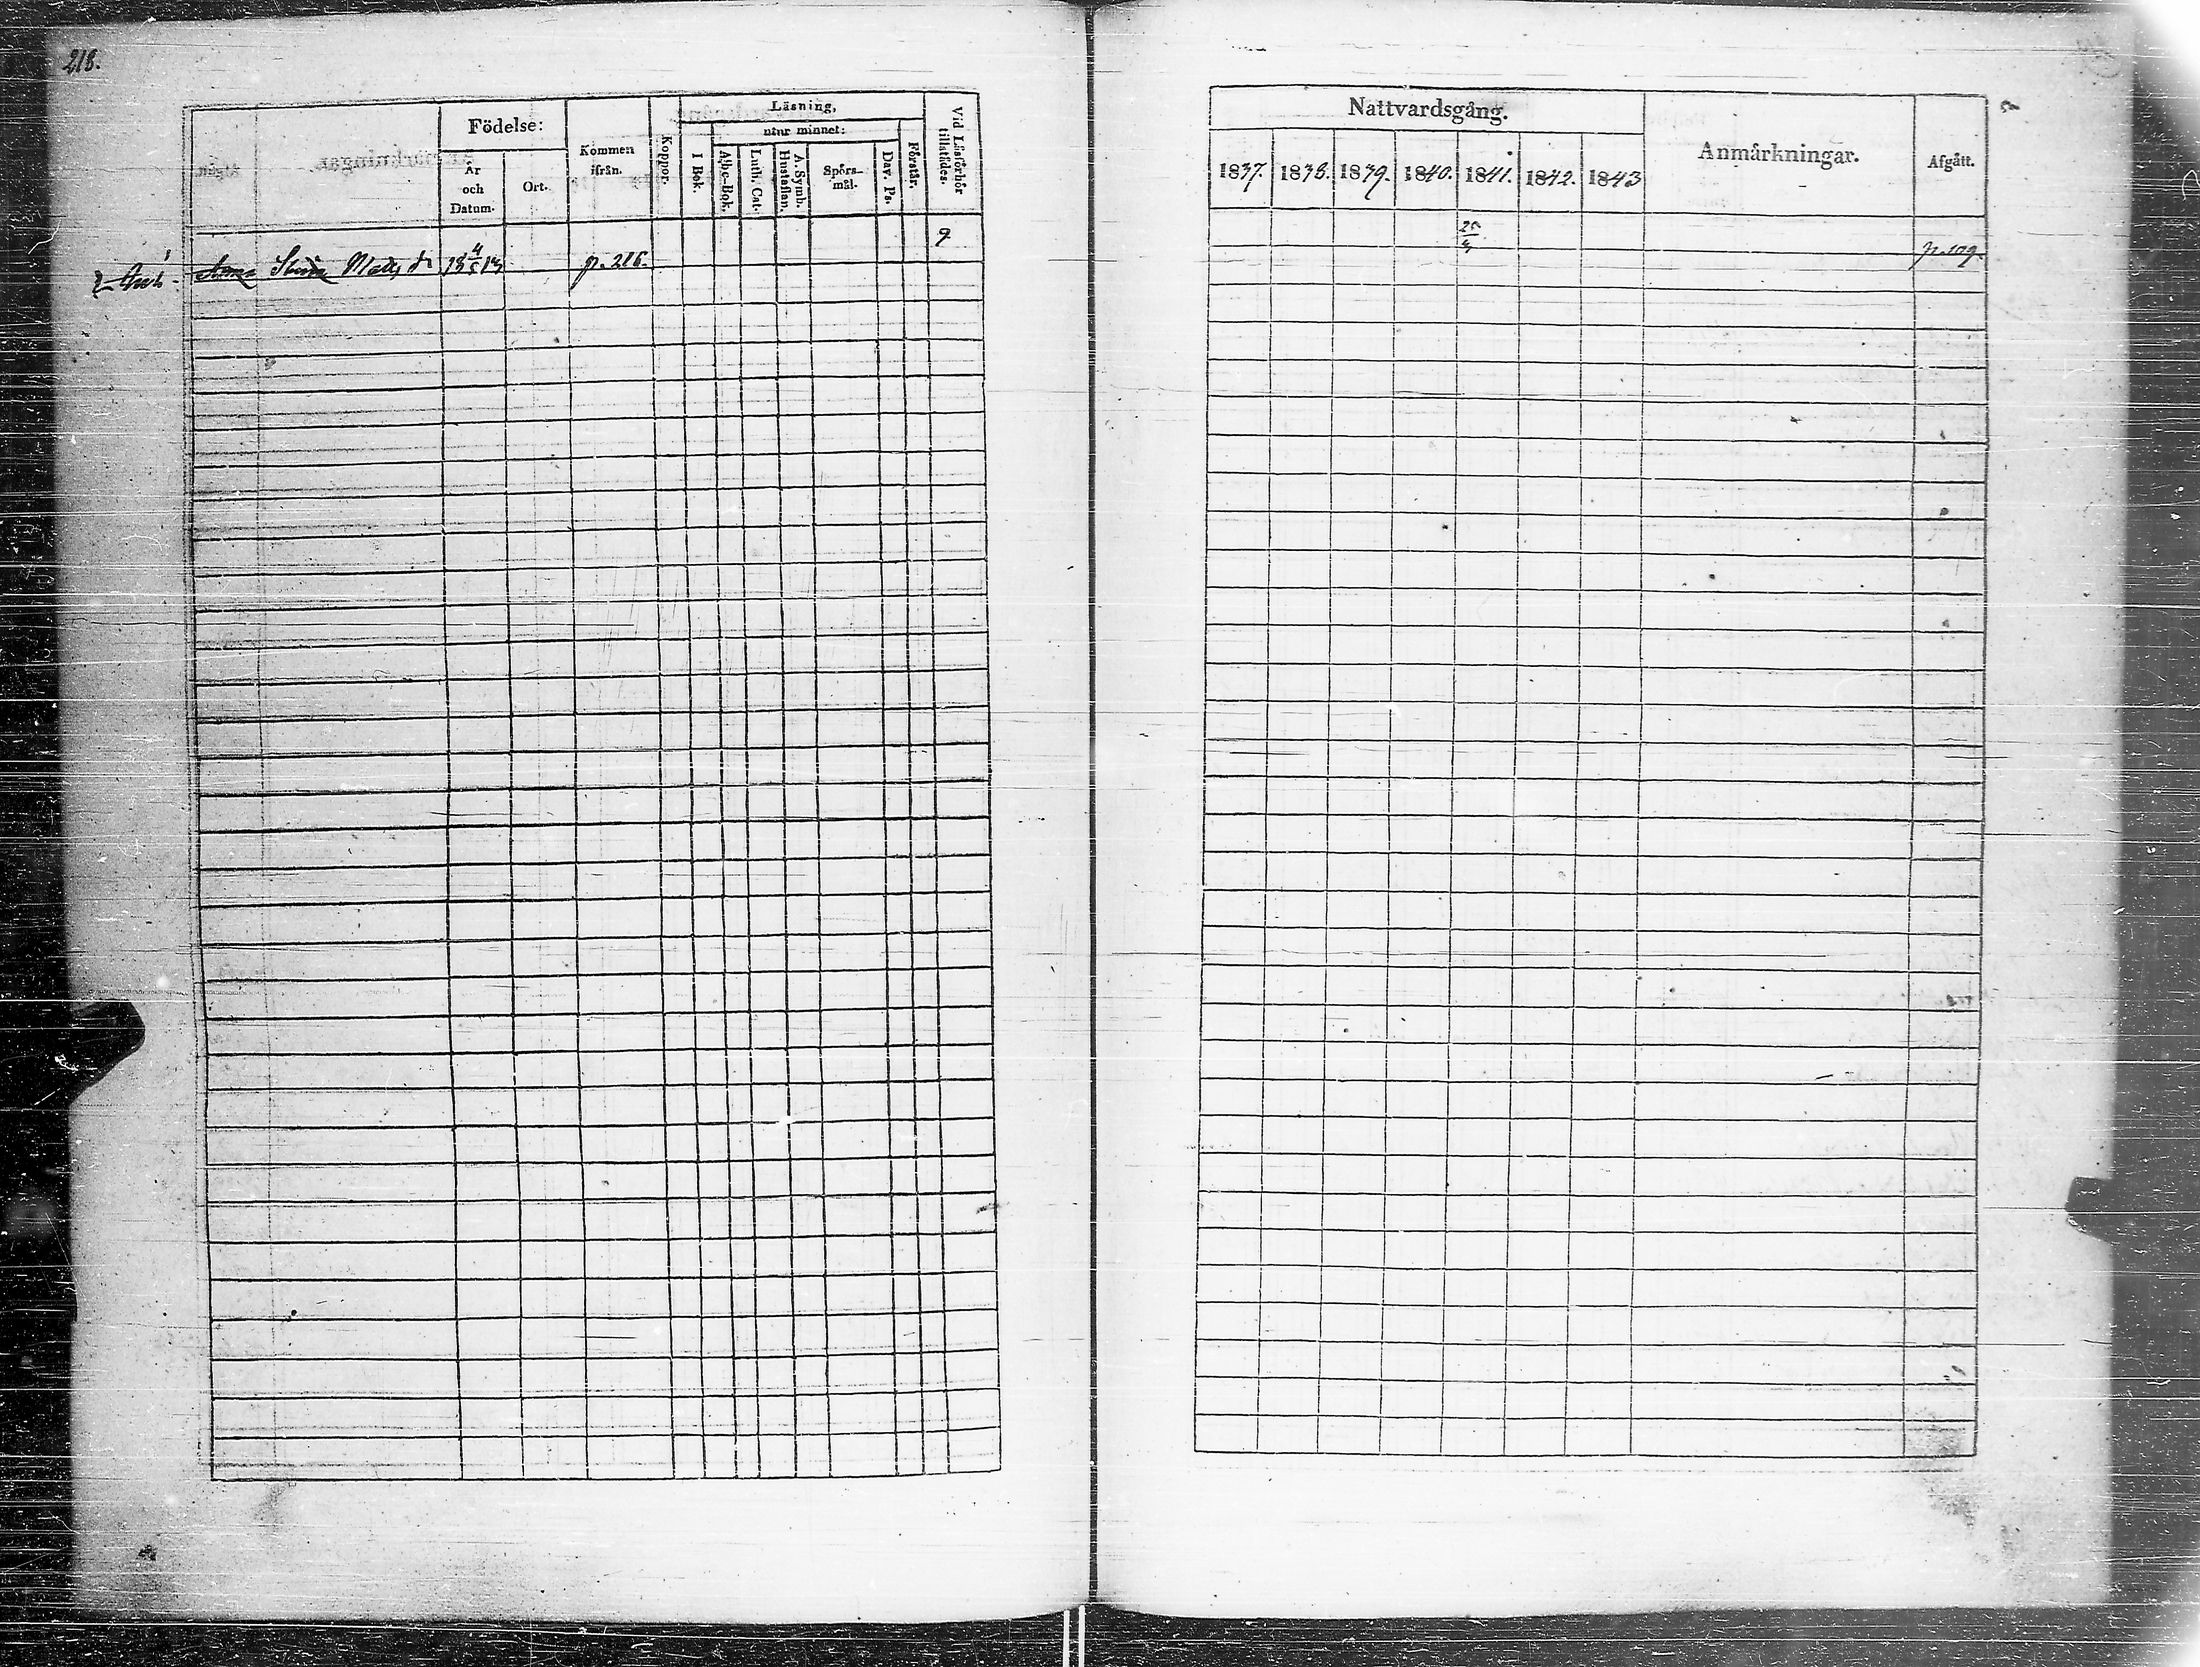 218.
Födelse:
År
och
Datum.
Ort.
Kommen
ifrån.
Koppor.
Läsning,
utur minnet:
I Bok.
Abc-Bok.
Luth. Cat.
A. Symb.
Hustaflan.
Spörs-
mål.
Dav. Ps.
Förstår.
Vid Läsförhör
tillstädes.
Anna Stina Matts d:r 18 4/5 13 p. 216. 9
Nattvardsgång.
1837. 1838. 1839. 1840. 1841. 1842. 1843
Anmärkningar.
Afgått.
p. 109.